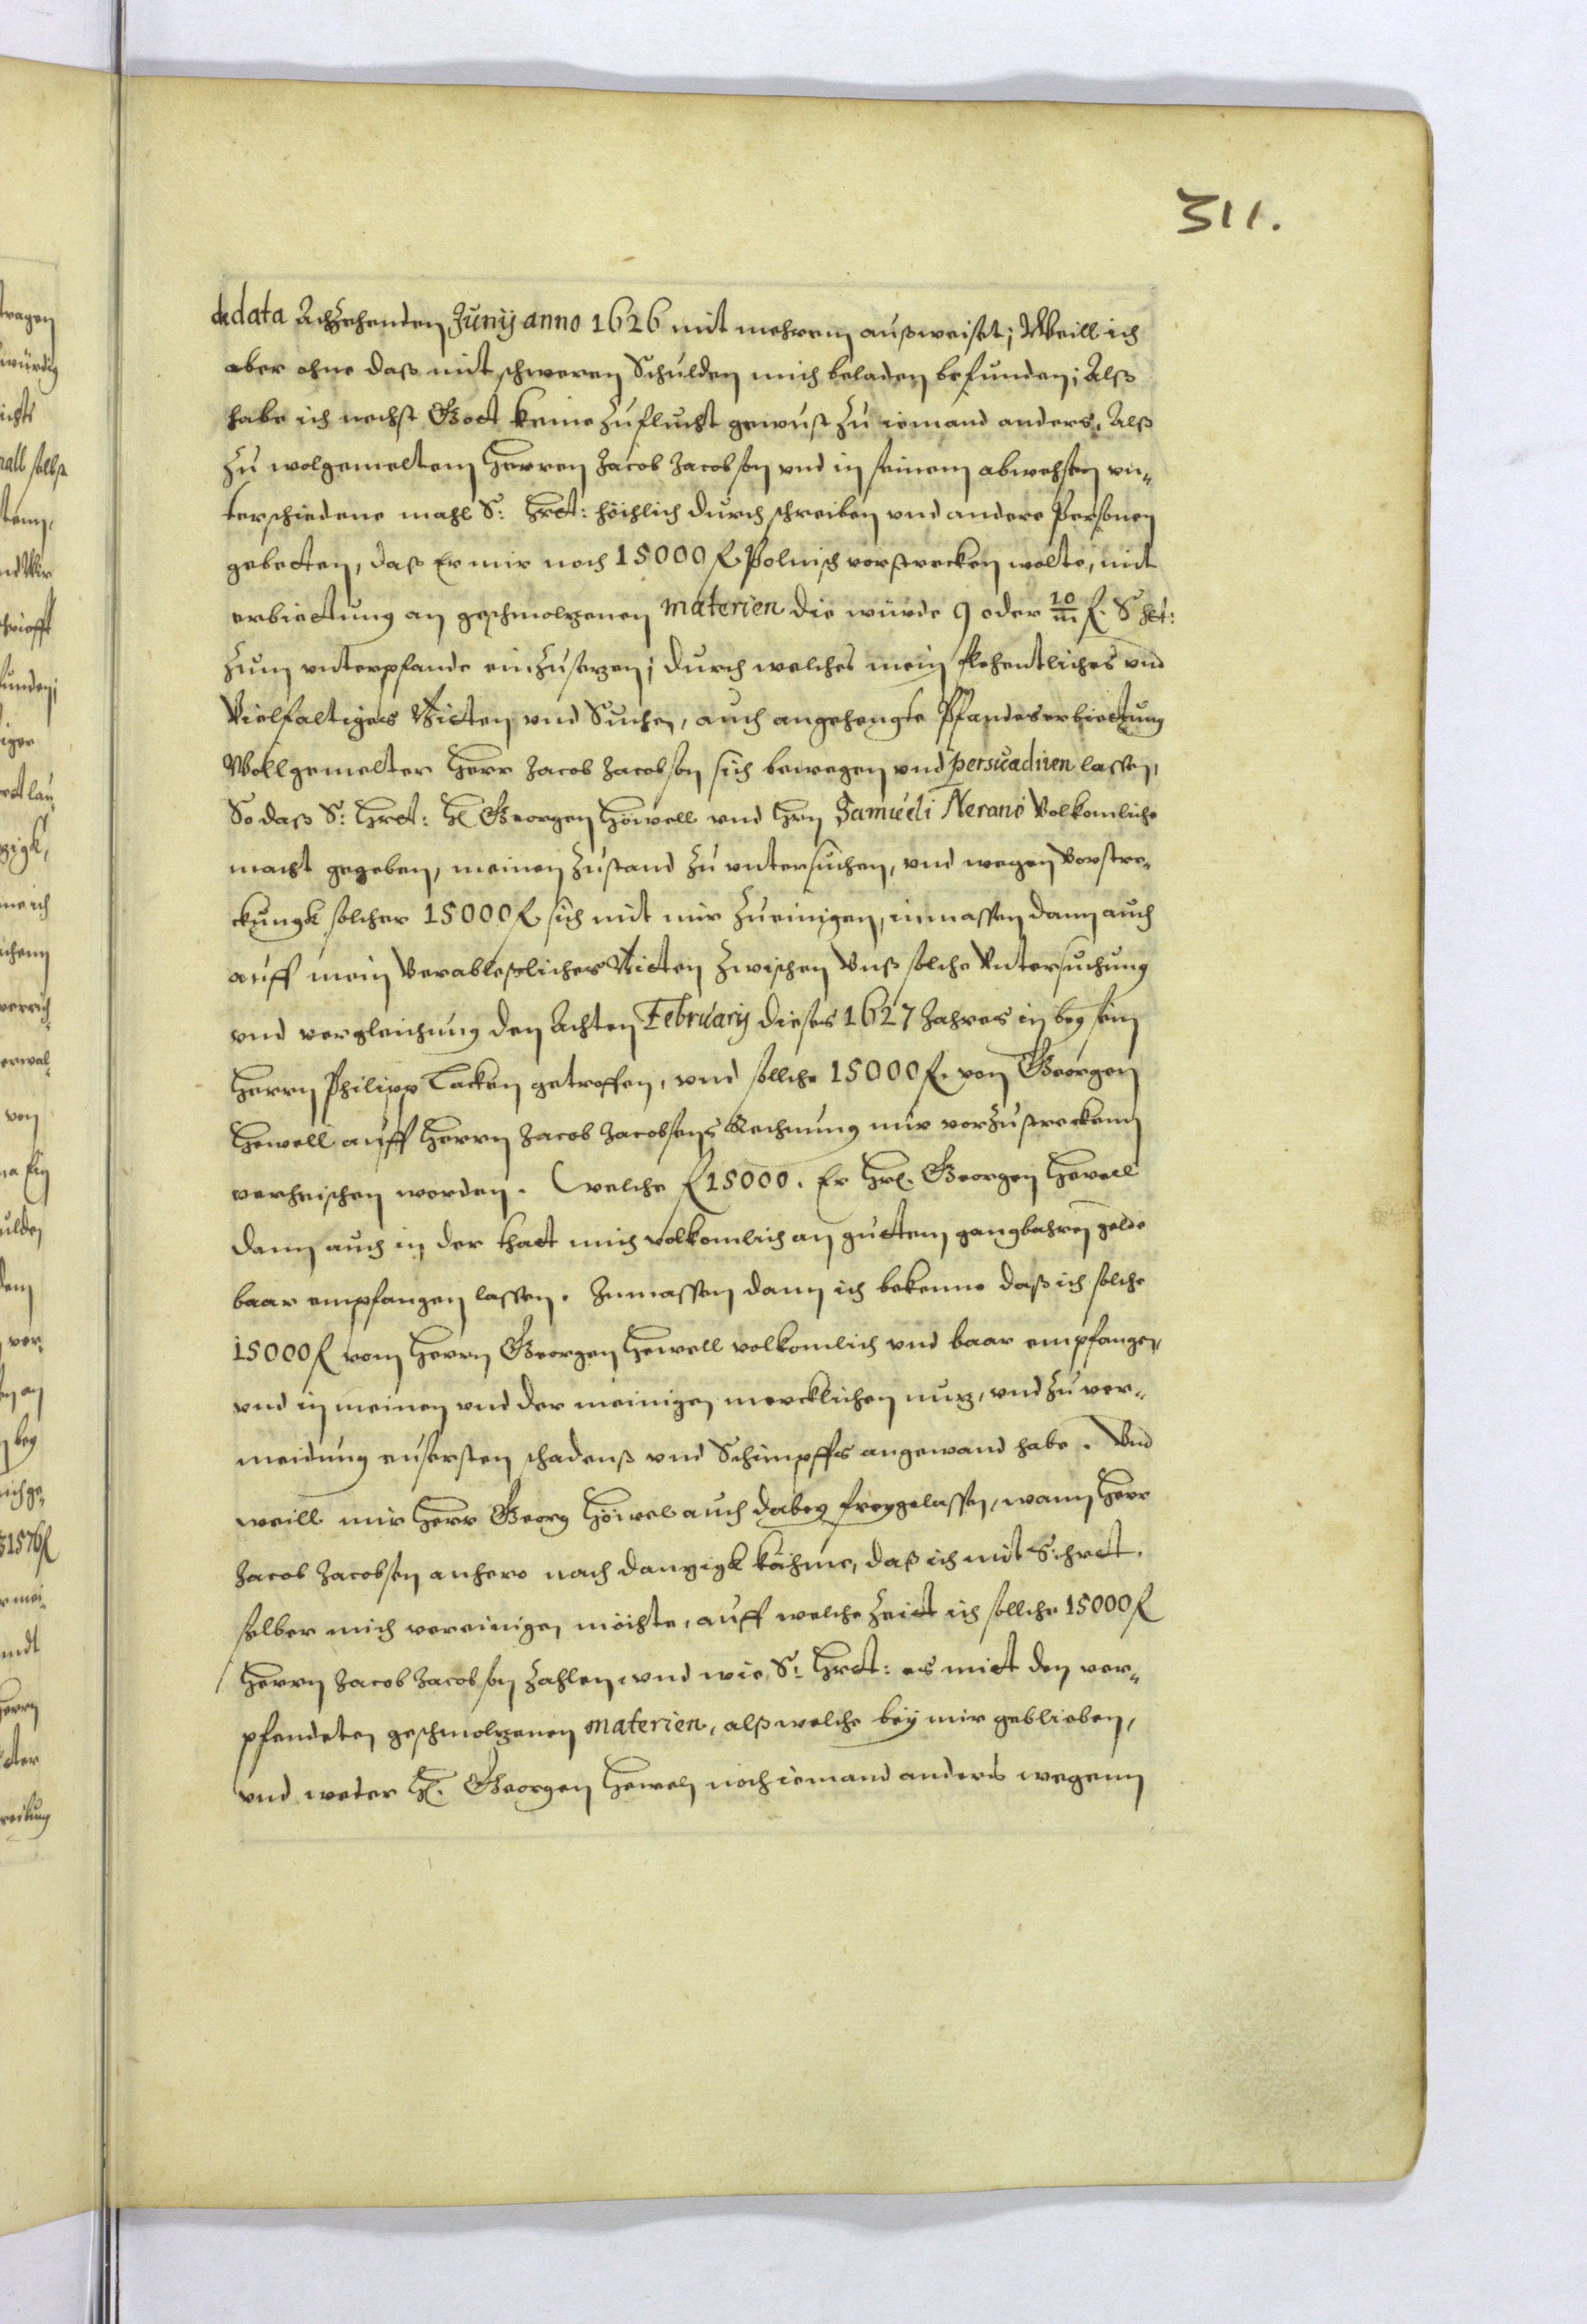 311.
de data Achzehenden Junij anno 1626 mit mehrem außweiset; Weill ich
aber ohne daß mit schweren Schulden mich beladen befunden; Alß
habe ich nechst Gott keine Zuflucht gewust zu iemand anders, Alß
zu wolgemeltem Herren Jacob Jacobson vnd in seinem abwehsen vn¬
terschiedene mahl S: Hrct: höichlich durch schreiben vnd andere Personen
gebetten, daß Er mir noch 15000 fl Polnisch vorstrecken wolte, mit
erbiettung an geschmolzenen Materien die würde 9 oder 10/m fl. S hct:
zum vnterpfande einzusezen; durch welches mein flehentliches vnd
Vielfaltiges Bitten vnd Suchen, auch angehengte Pfandeserbiettung
Wollgemelter Herr Jacob Jacobson sich bewegen vnd persuadiren lassen,
So daß S: Hrct: H Georgen Höwell vnd Hrn Samueli Nerano Volkomliche
macht gegeben, meinen Zustand zu vntersuchen, vnd wegen Vorstre¬
ckungk solcher 15000 fl sich mit mir zueinigen, inmassen dann auch
auff mein Vnableßliches Bitten zwischen Vnß solche Vntersuchung
vnd vergleichung den Achten Februarij dieses 1627 Jahres in bey sein
Herrn Philipp Lacken getroffen, vnd sollche 15000 fl. von Georgen
Hewell auff Herrn Jacob Jacobsens Rechnung mir vorzustreckenn
verheischen worden. Welche fl 15000. Er Hr. Georgen Hewell
dann auch in der thatt mich volkomlich an guttem gangbahren gelde
baar empfangen lassen. Inmassen dann ich bekenne daß ich solche
15000 fl vom Herrn Georgen Hewell volkomlich vnd baar empfangen,
vnd in meinen vnd der meinigen mercklichen nuz, vnd zu ver¬
meidung eusersten schadenß vnd Schimpffes angewand habe. Vnd
weill mir Herr Georg Höwel auch dabey freygelassen, wann Herr
Jacob Jacobsen anhero nach danzigk kähme, daß ich mit S: hrct.
selber mich vereinigen möichte, auff welche Zeitt ich sollche 15000 fl
Herrn Jacob Jacobson zahlen, vnd wie S: Hrct: es mitt den ver¬
pfendeten geschmolzenen Materien, alß welche bey mir geblieben,
vnd weder H. Georgen Heweln noch iemand anders wegenn